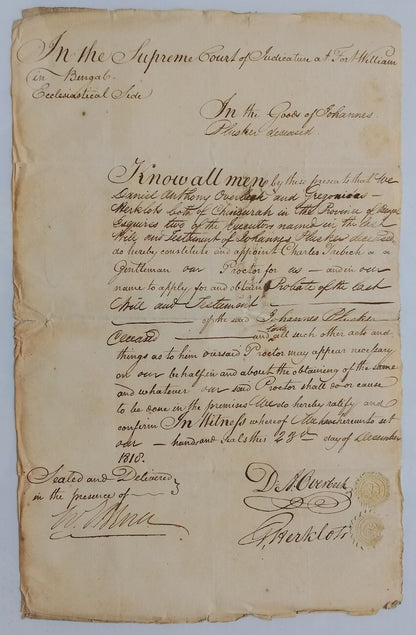 In the Supreme Court of Judicature at Fort William
in Bengal.
Ecclesiastical Side
In the Goods of Johannes
Plusker deceased.
Know all men by these presents that We
Daniel Anthony Overbeek and Gregorius
Herklots both of Chinsurah in the Province of
Esquires two of the Executors named in the last
Will and Testament of Johannes Plusker deceased
do hereby constitute and appoint Charles a
Gentleman our Proctor for us — and in our
name to apply for and obtain Probate of the last
Will and Testament
of the said Johannes Plusker
deceased and all such other acts and
things as to him our said Proctor may appear necessary
on our behalf in and about the obtaining of the same
and whatever our said Proctor shall do or cause
to be done in the premises We do hereby ratify and
confirm In Witness whereof We have hereunto set
our — hands and seals this 28th day of December
1818.
Sealed and Delivered
in the presence of
D. A. Overbeek
G Herklots